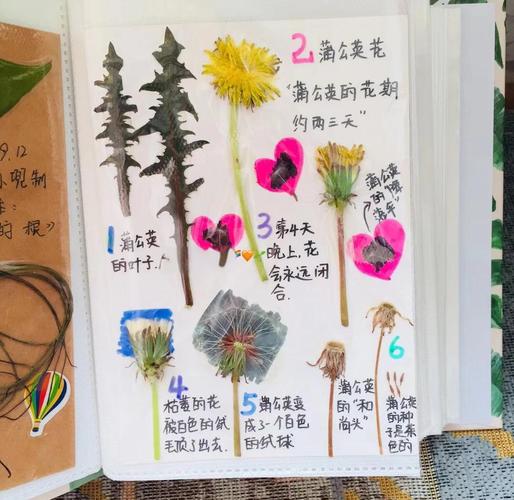 9.12
小呪制
的根》
2 蒲公英花
"蒲公英的花期
约两三天"
1 蒲公英
的叶子.
3 第4天
晚上,花
会永远闭
合.
蒲公英
的"降
落伞"
4
枯萎的花
被白色的绒
毛顶了出去.
5 蒲公英变
成了一个白色
的绒球
蒲公英
的"和
尚头"
6
蒲公英
的种
子是茶
色的